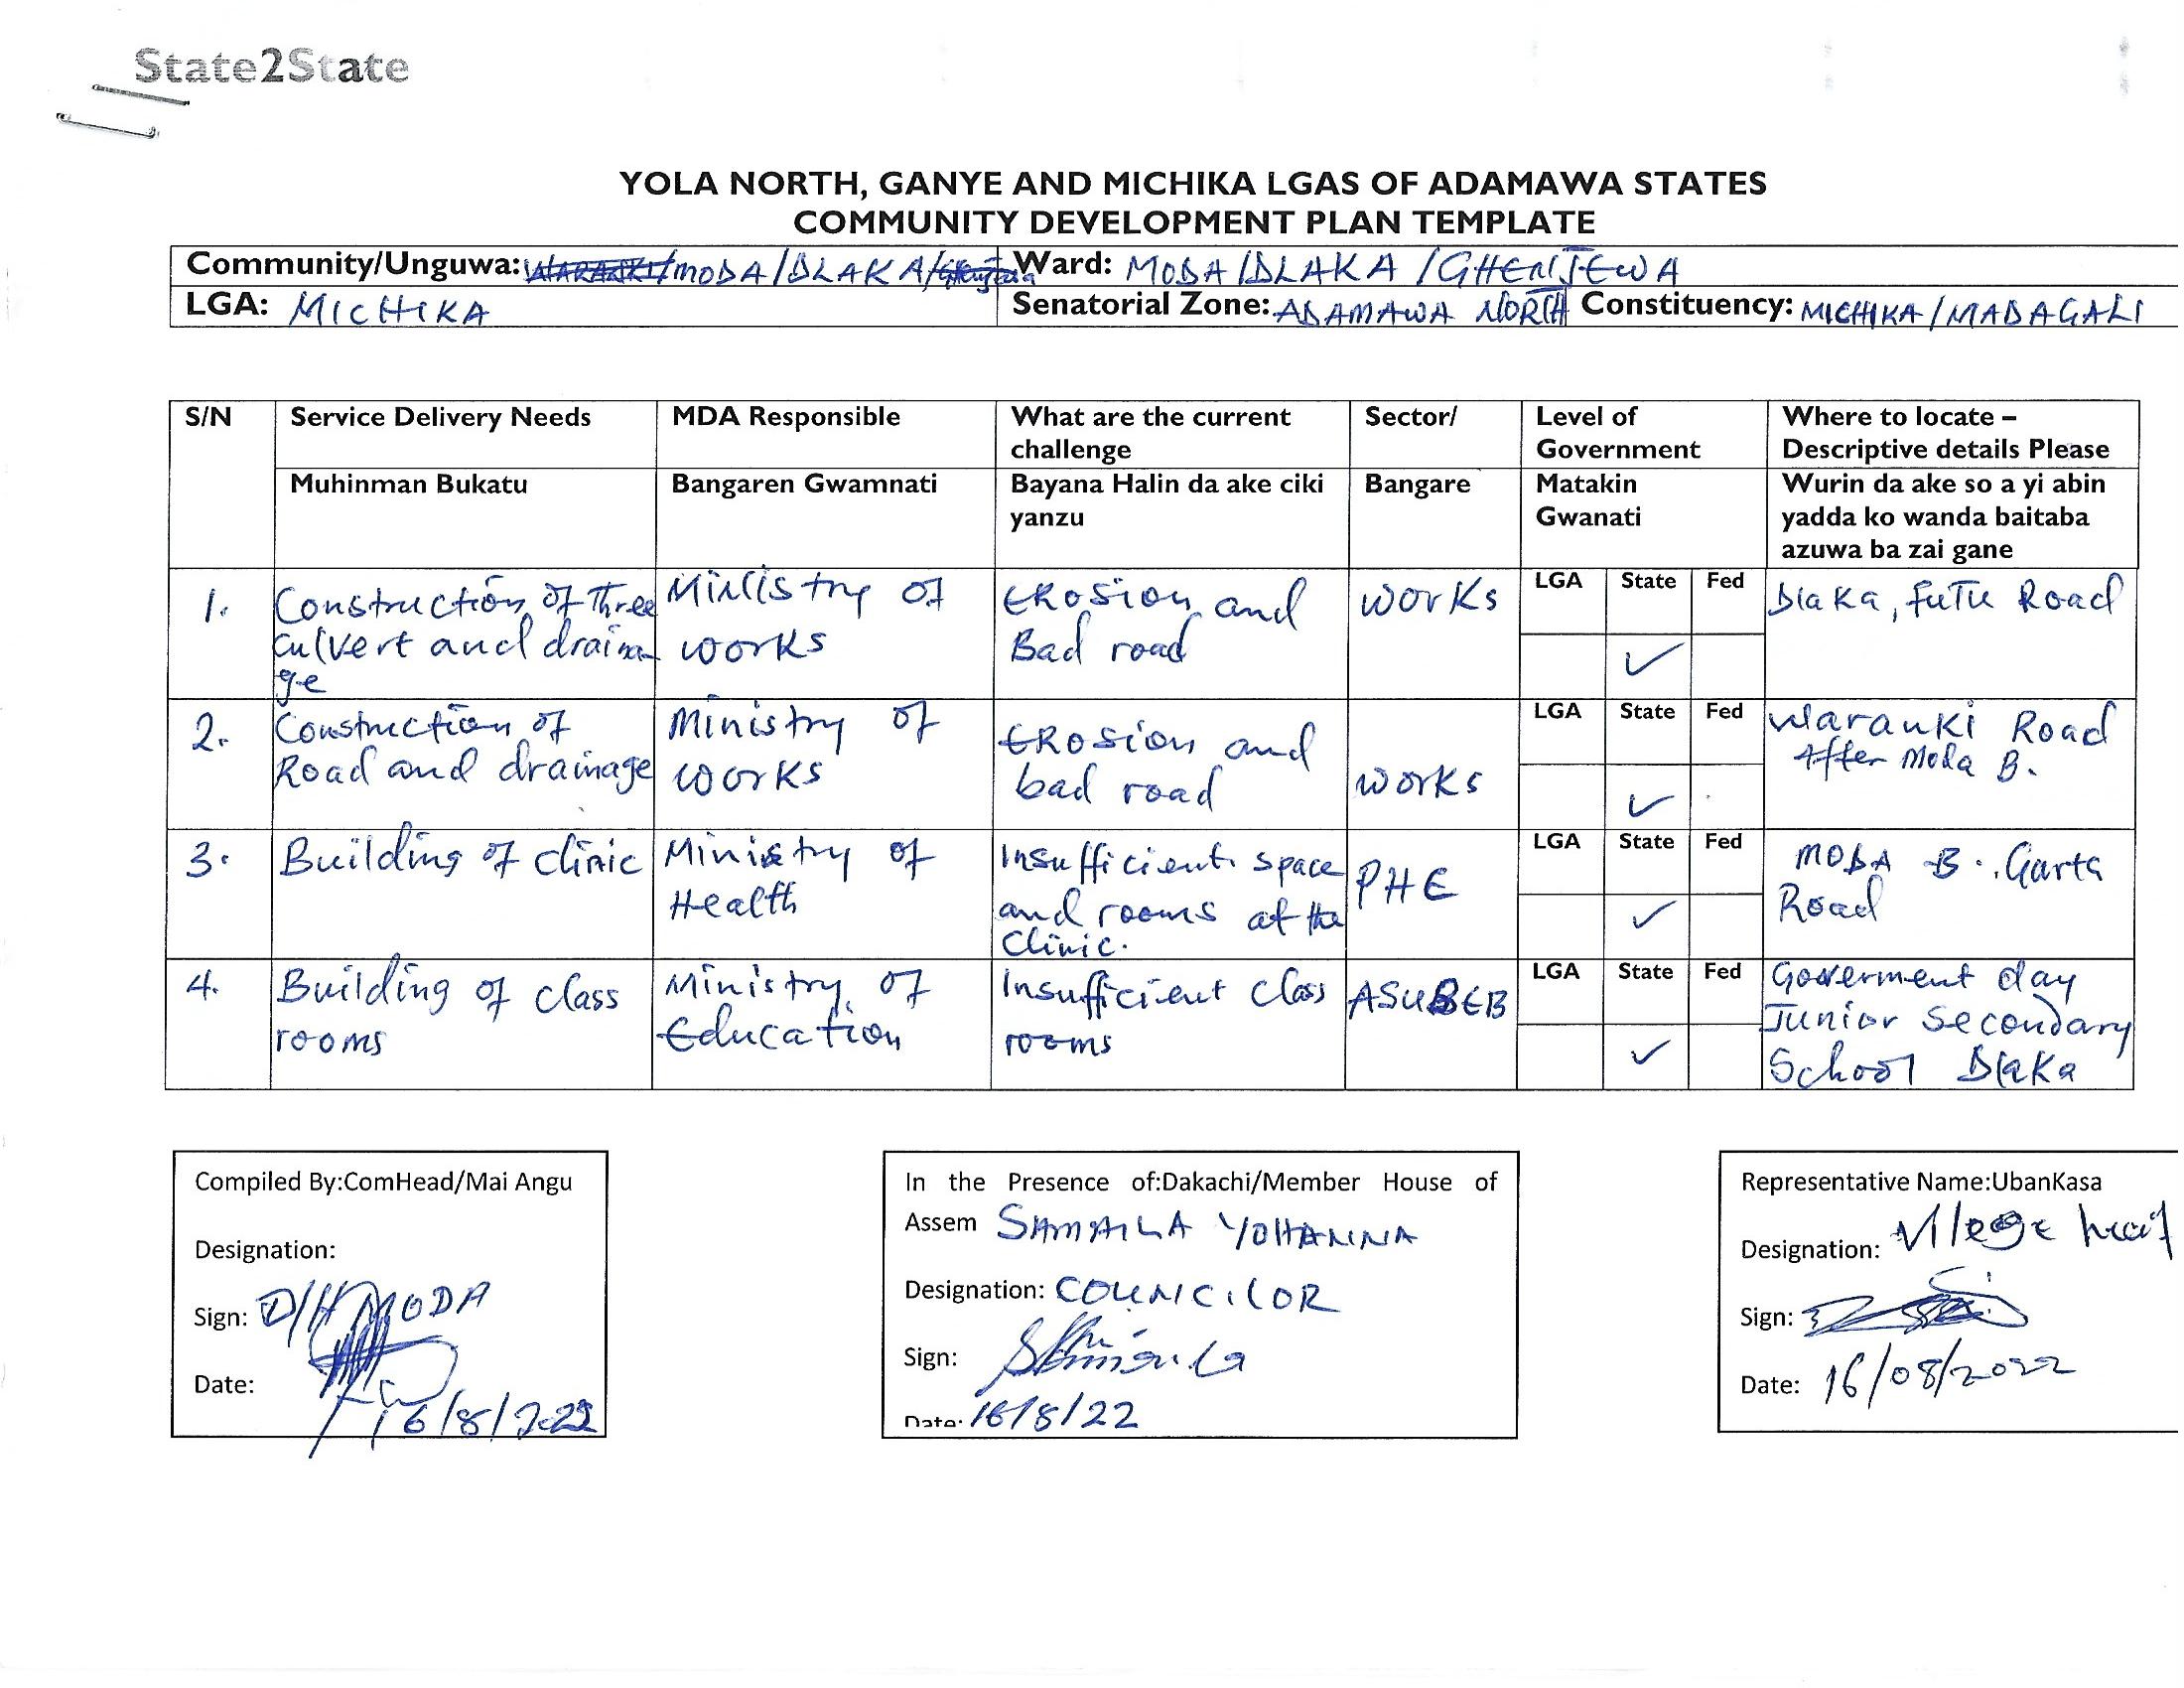 State2State
YOLA NORTH, GANYE AND MICHIKA LGAS OF ADAMAWA STATES
COMMUNITY DEVELOPMENT PLAN TEMPLATE
Community/Unguwa: MODA/DLAKA/ Ward: MODA/DLAKA/GHENJEWA
LGA: MICHIKA Senatorial Zone: ADAMAWA NORTH Constituency: MICHIKA/MADAGALI
S/N Service Delivery Needs MDA Responsible What are the current challenge Sector/ Level of Government Where to locate – Descriptive details Please
Muhinman Bukatu Bangaren Gwamnati Bayana Halin da ake ciki yanzu Bangare Matakin Gwanati Wurin da ake so a yi abin yadda ko wanda baitaba azuwa ba zai gane
1. Construction of Three Culvert and drainage Ministry of works Erosion and Bad road works LGA State Fed ✓ Dlaka, FuTu Road
2. Construction of Road and drainage Ministry of works Erosion and bad road works LGA State Fed ✓ Waranki Road After Moda B.
3. Building of clinic Ministry of Health Insufficient space and rooms at the Clinic. PHE LGA State Fed ✓ MODA B. Garta Road
4. Building of class rooms Ministry of Education Insufficient Class rooms ASUBEB LGA State Fed ✓ Goverment day Junior Secondary School Dlaka
Compiled By:ComHead/Mai Angu
Designation:
Sign: D/H MODA
Date: 16/8/2022
In the Presence of:Dakachi/Member House of
Assem SAMAILA YOHANNA
Designation: COUNCILOR
Sign: Samaila
Date: 16/8/22
Representative Name:UbanKasa
Designation:
Sign:
Date: 16/08/2022